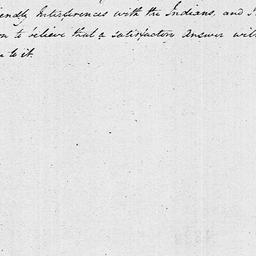 iendly Interferences with the Indians, and
on to believe that a satisfactory Answer wil
n to it.